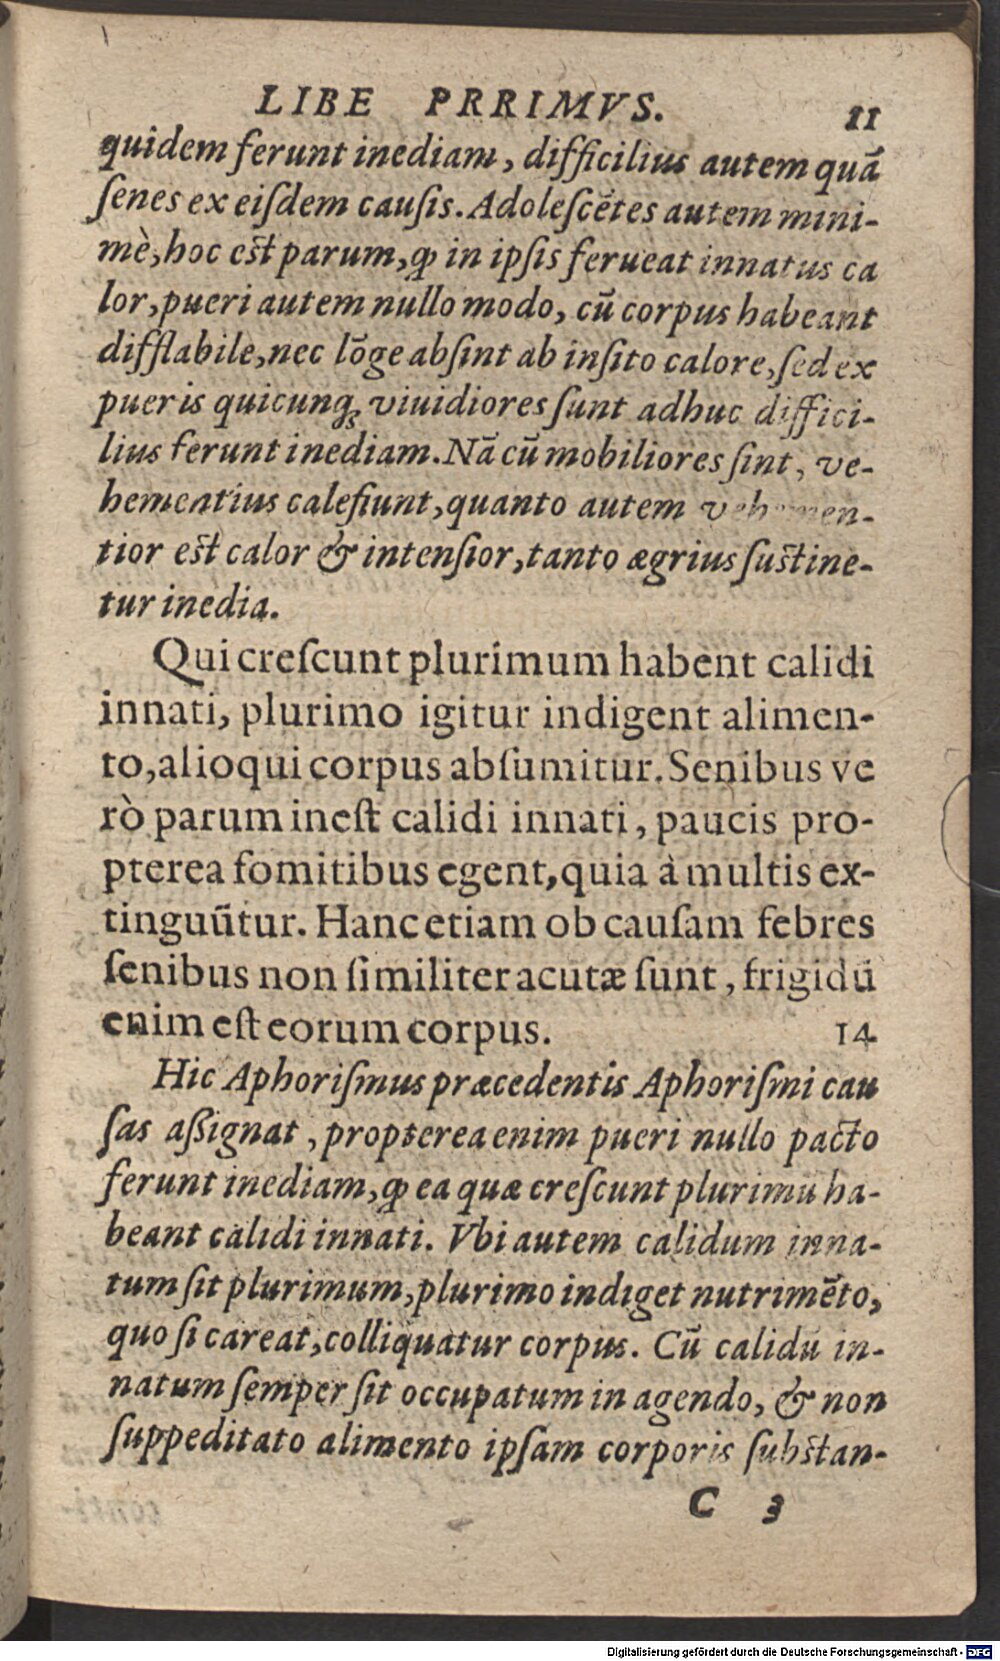 LIBE PRRIMVS. 11
quidem ferunt inediam, difficilius autem quā
ſenes ex eiſdem cauſis. Adoleſcētes autem mini-
mè, hoc est parum, ꝙ in ipſis ferueat innatus ca
lor, pueri autem nullo modo, cū corpus habeant
difflabile, nec lōge abſint ab inſito calore, ſed ex
pueris quicunqꝫ viuidiores ſunt adhuc diffici-
lius ferunt inediam. Nā cū mobiliores ſint, ve-
hementius calefiunt, quanto autem vehemen-
tior est calor & intenſior, tanto ægrius ſustine-
tur inedia.
Qui creſcunt plurimum habent calidi
innati, plurimo igitur indigent alimen-
to, alioqui corpus abſumitur. Senibus ve
rò parum ineſt calidi innati, paucis pro-
pterea fomitibus egent, quia à multis ex-
tinguūtur. Hanc etiam ob cauſam febres
ſenibus non ſimiliter acutæ ſunt, frigidū
enim eſt eorum corpus. 14
Hic Aphoriſmus præcedentis Aphoriſmi cau
ſas aßignat, propterea enim pueri nullo pacto
ferunt inediam, ꝙ ea quæ creſcunt plurimū ha-
beant calidi innati. Vbi autem calidum inna-
tum ſit plurimum, plurimo indiget nutrimēto,
quo ſi careat, colliquatur corpus. Cū calidū in-
natum ſemper ſit occupatum in agendo, & non
ſuppeditato alimento ipſam corporis ſubstan-
C 3
Digitalisierung gefördert durch die Deutsche Forschungsgemeinschaft - DFG